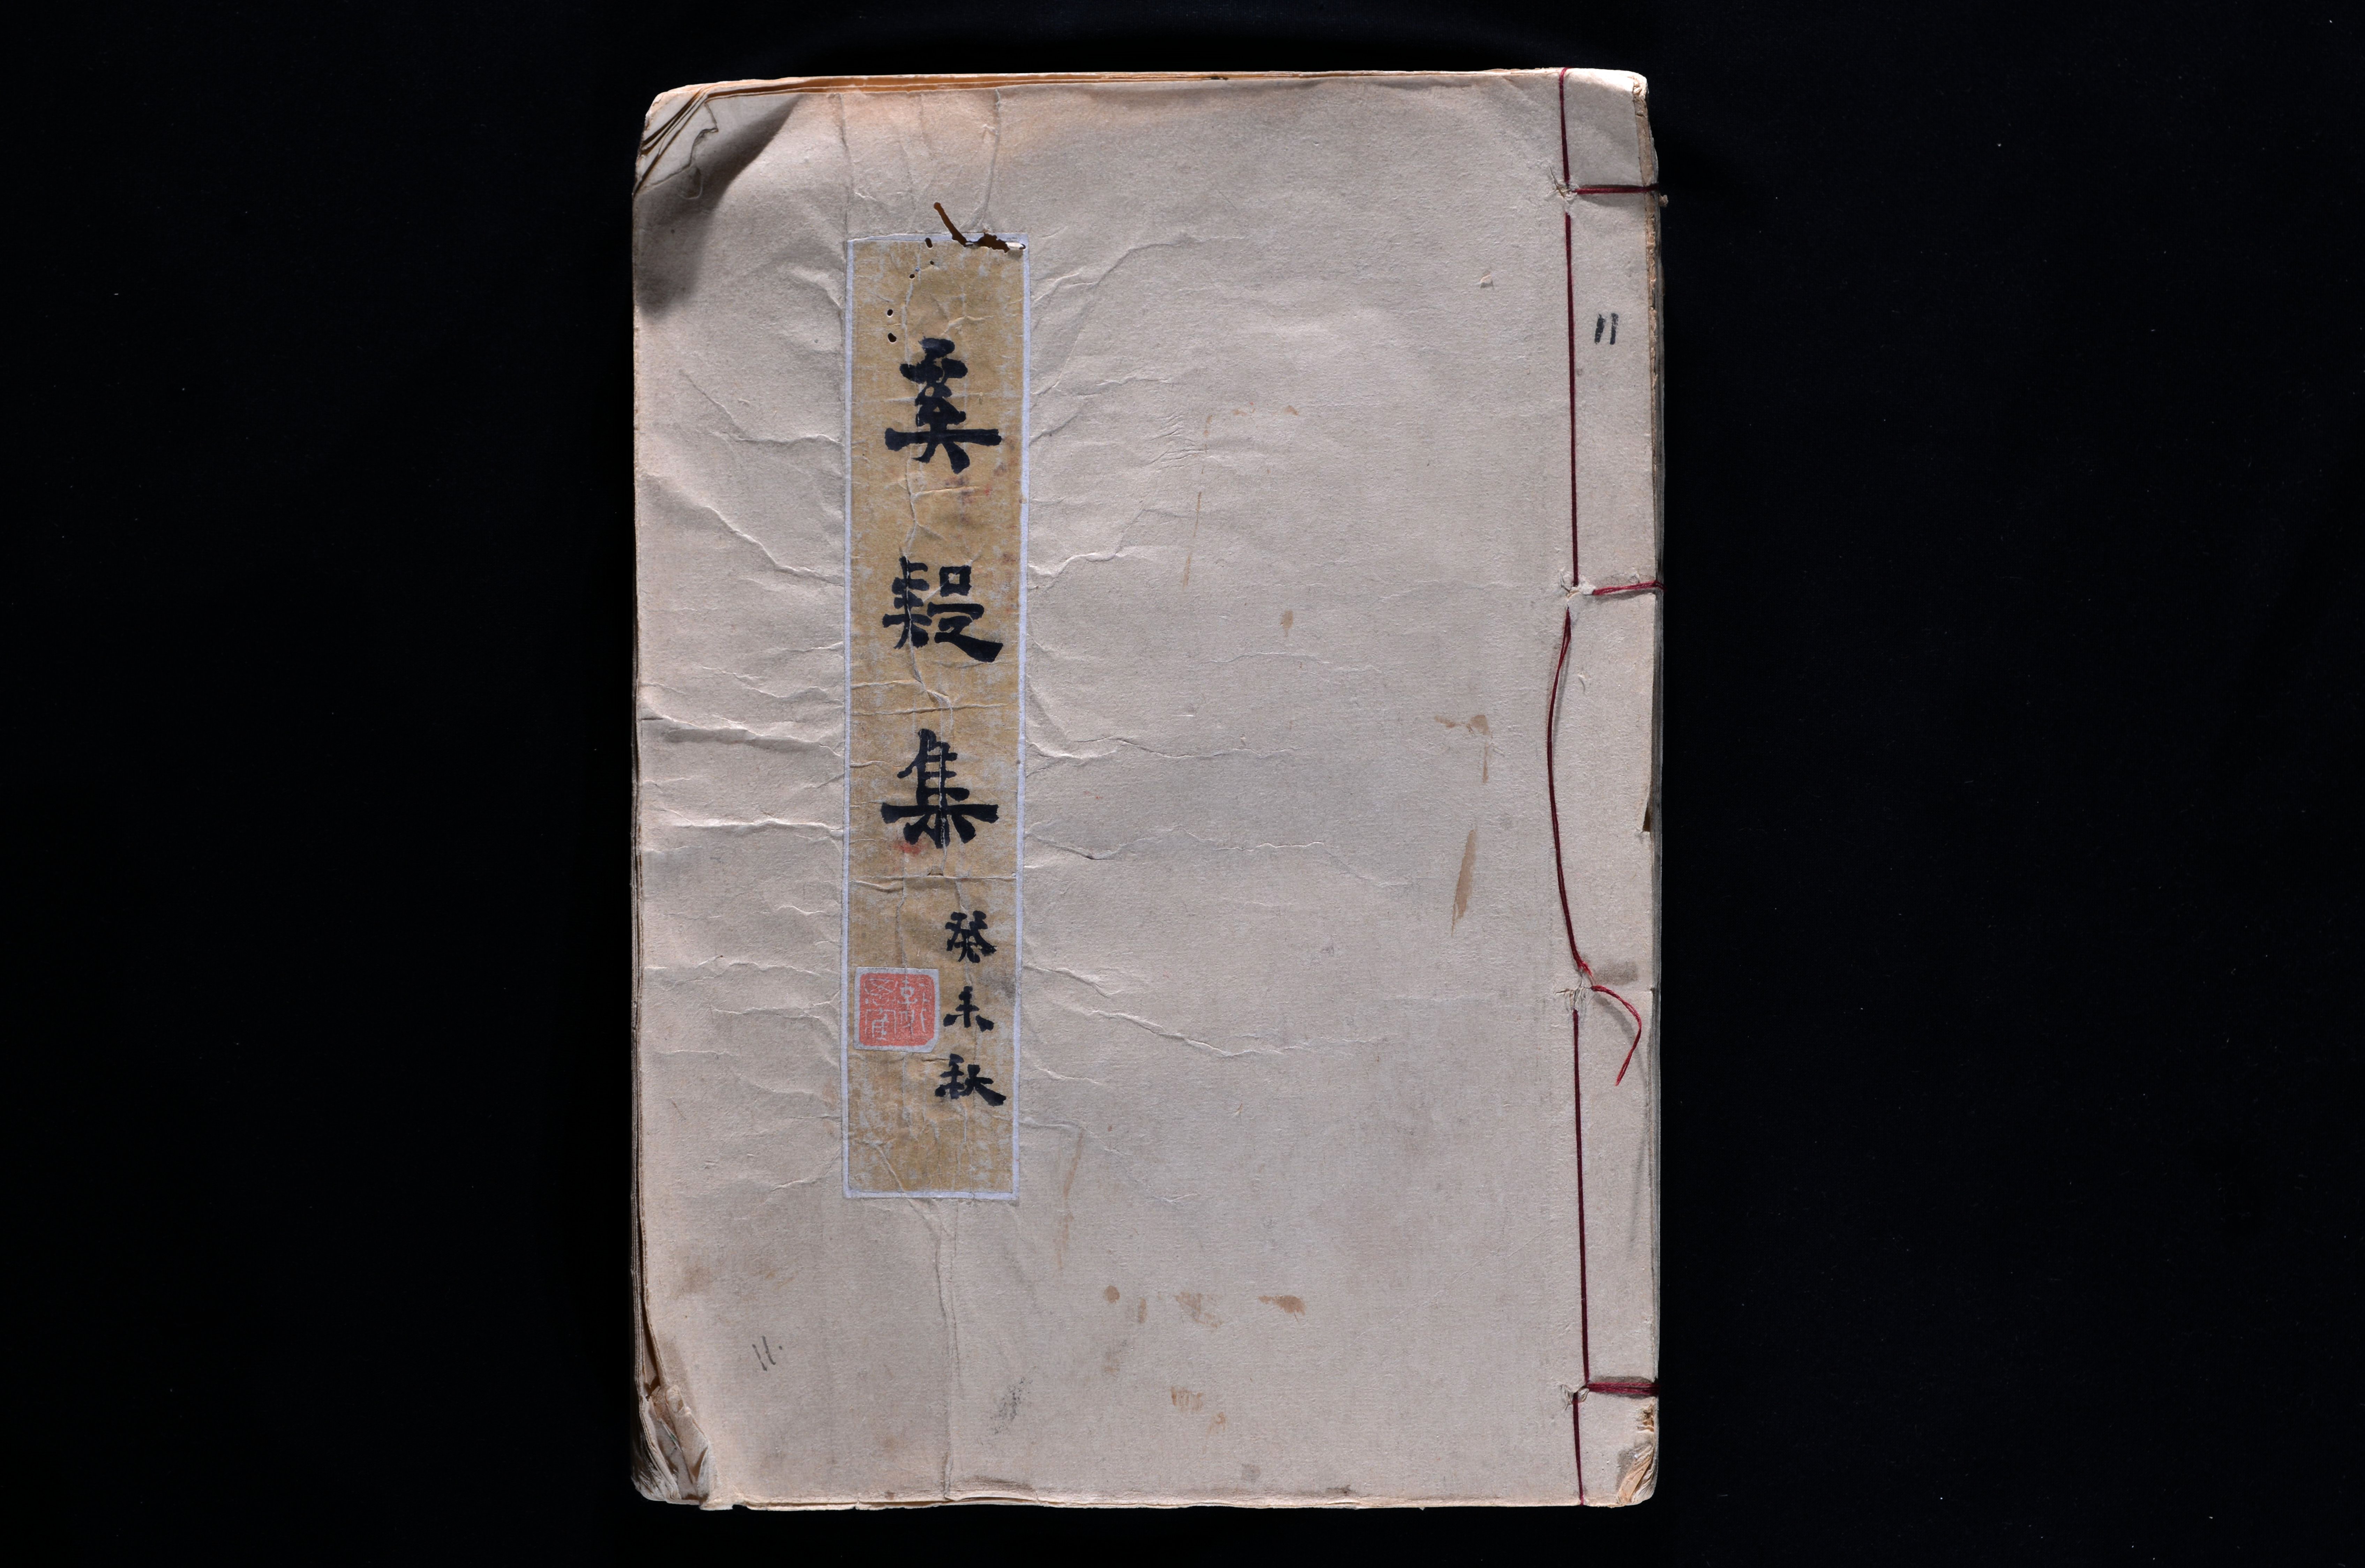 11
奚疑集
癸未秋
11.